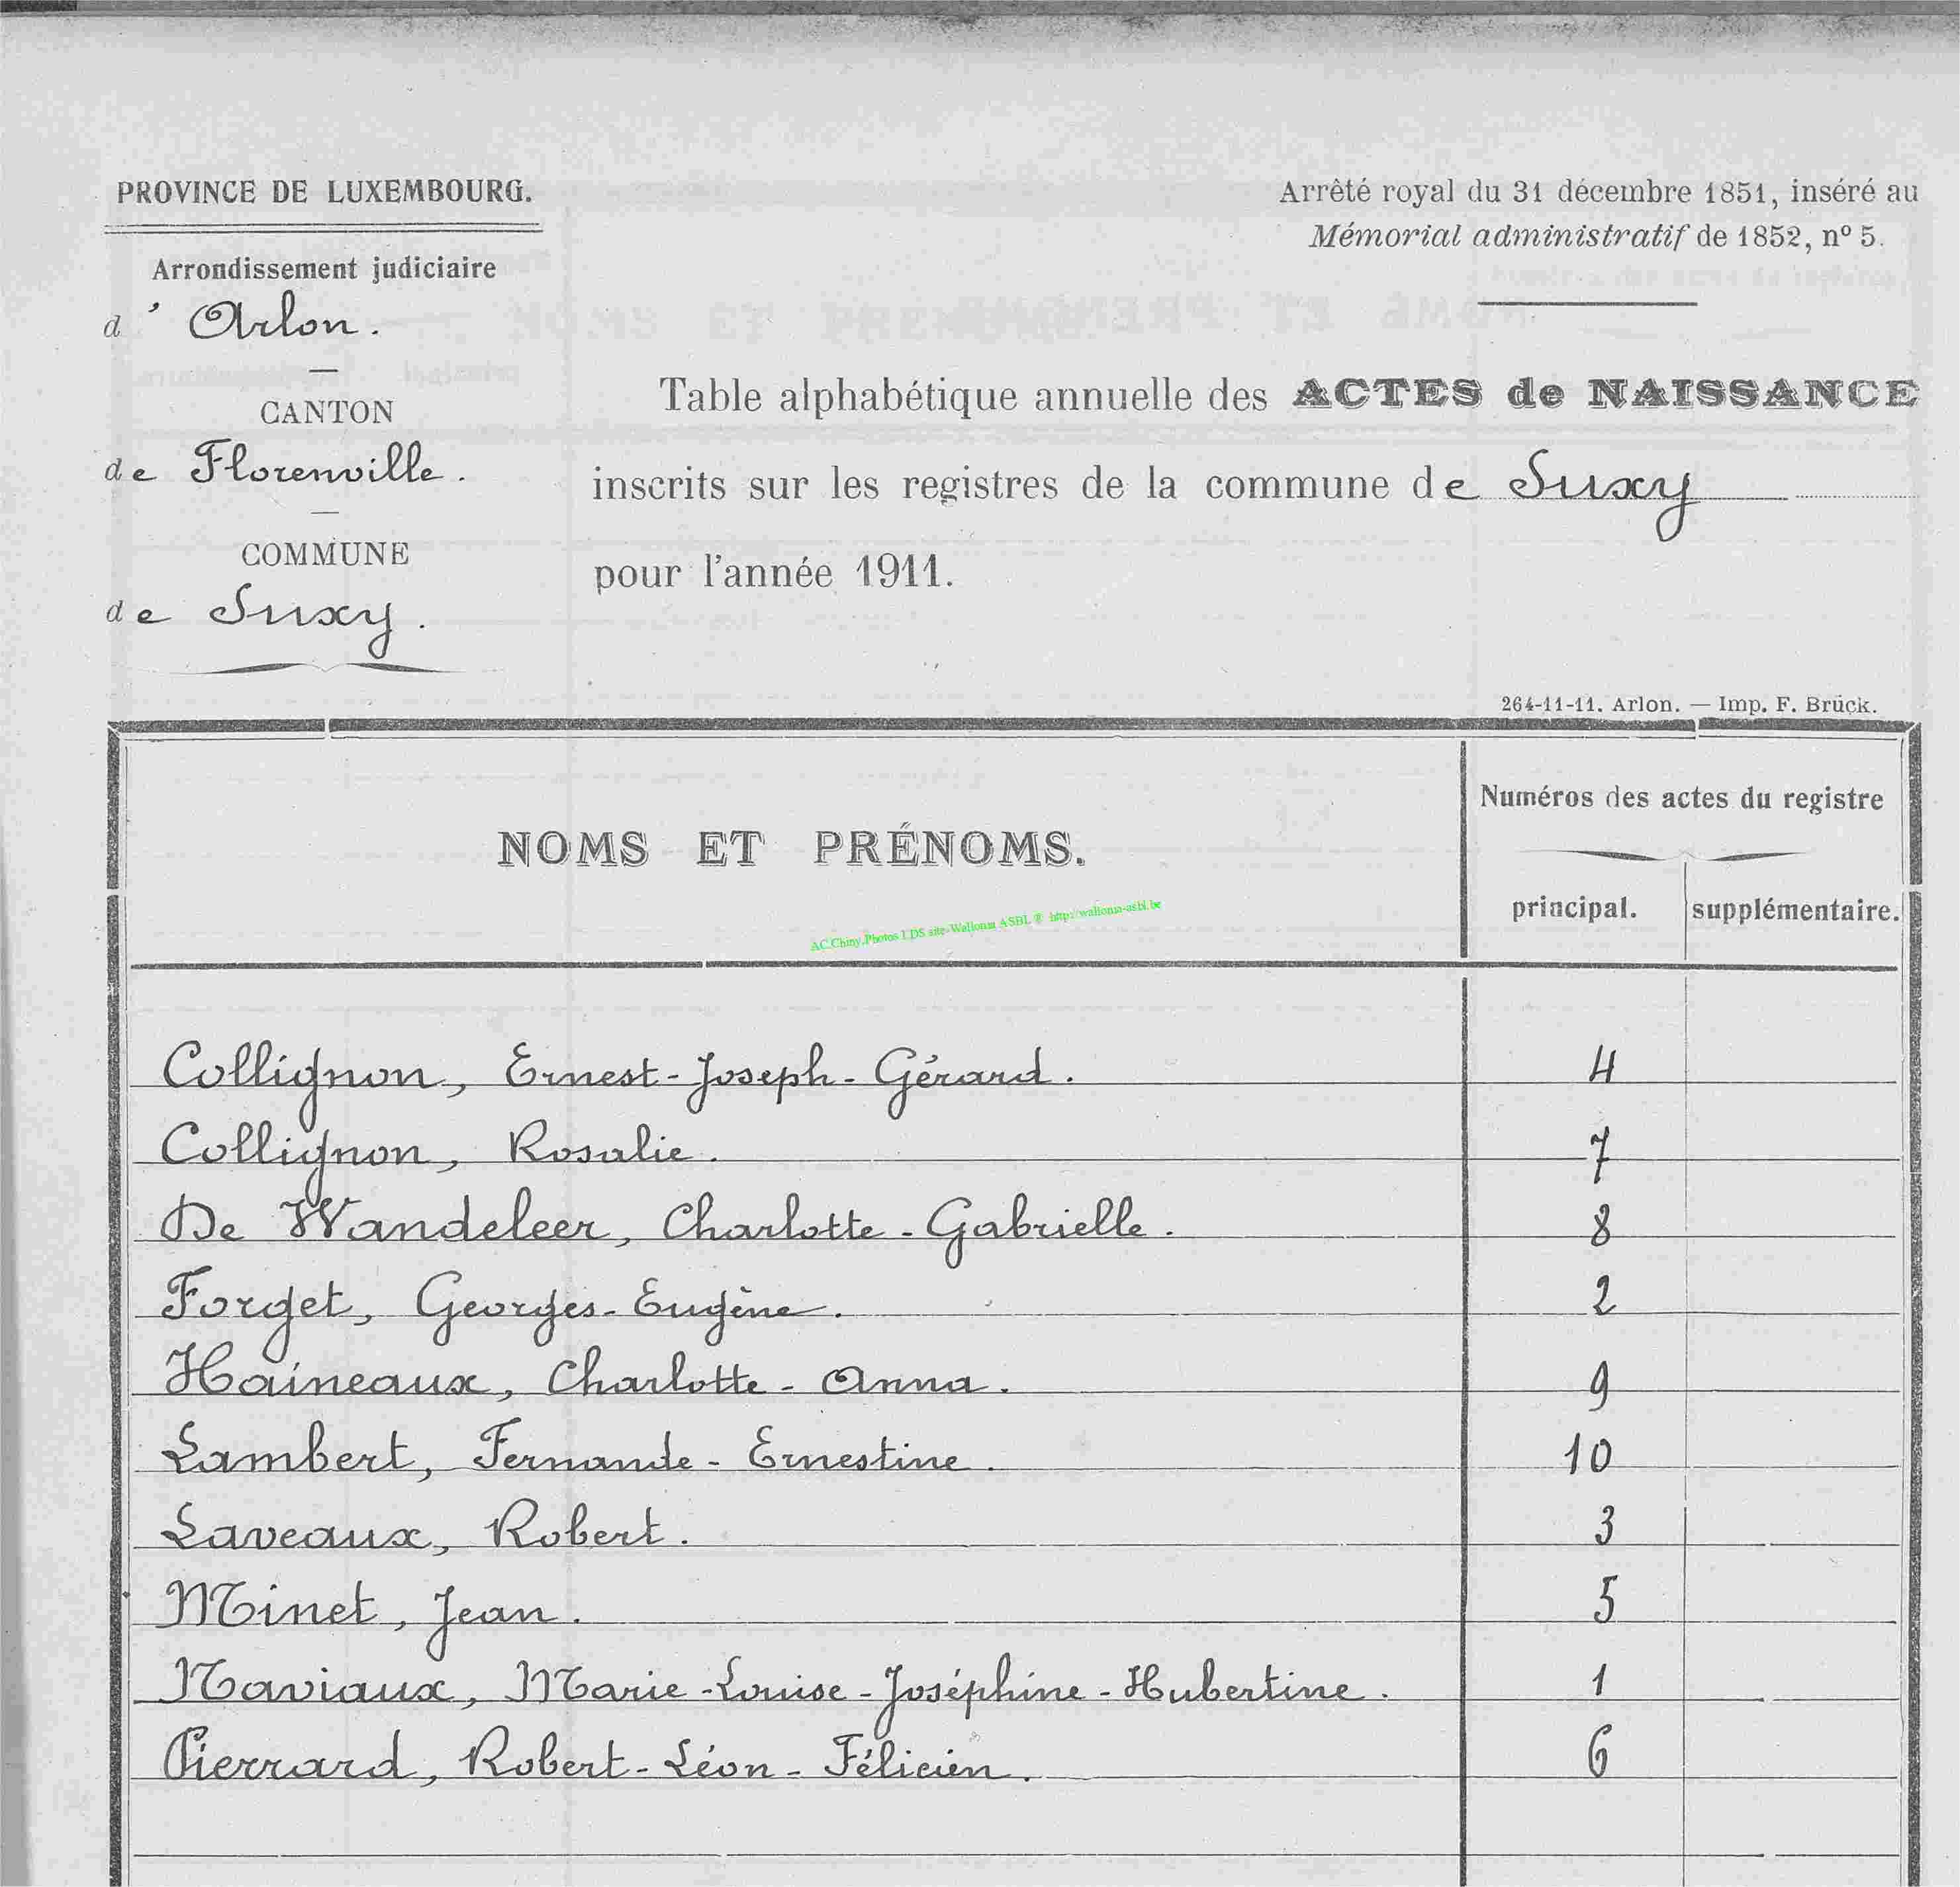 PROVINCE DE LUXEMBOURG.
Arrondissement judiciaire
d' Arlon.
CANTON
de Florenville.
COMMUNE
de Suxy.
Arrêté royal du 31 décembre 1851, inséré au
Mémorial administratif de 1852, nº 5.
Table alphabétique annuelle des ACTES de NAISSANCE
inscrits sur les registres de la commune de Suxy
pour l'année 1911.
264-11-11. Arlon. — Imp. F. Brück.
NOMS ET PRÉNOMS.
Numéros des actes du registre
principal. supplémentaire.
AC.Chiny.Photos LDS site-Wallonia ASBL ® http://wallonia-asbl.be
Collignon, Ernest-Joseph-Gérard. 4
Collignon, Rosalie. 7
De Wandeleer, Charlotte-Gabrielle. 8
Forget, Georges-Eugène. 2
Haineaux, Charlotte-Anna. 9
Lambert, Fernande-Ernestine. 10
Laveaux, Robert. 3
Minet, Jean. 5
Naviaux, Marie-Louise-Joséphine-Hubertine. 1
Pierrard, Robert-Léon-Félicien. 6